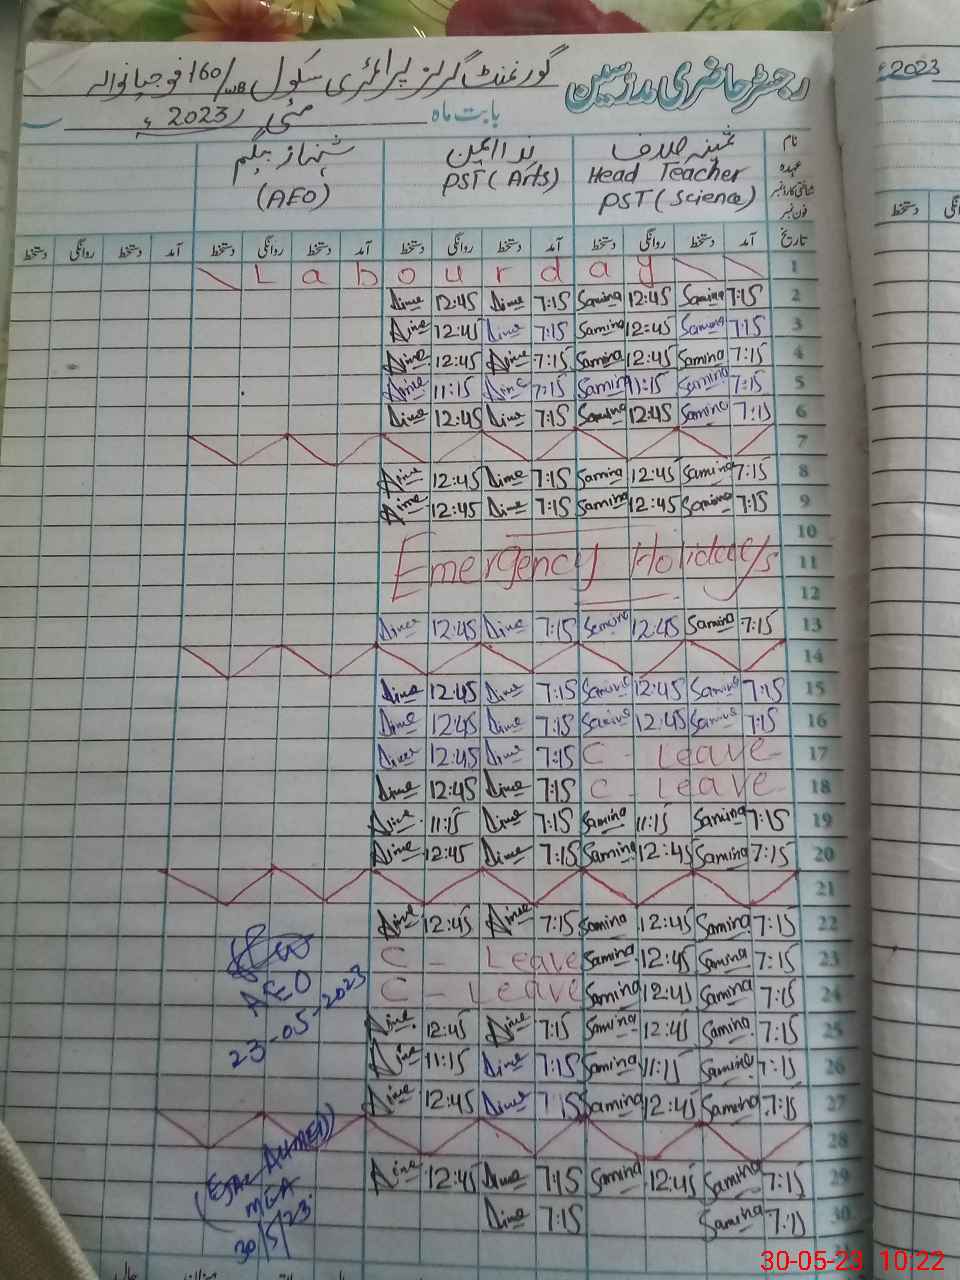 رجسٹر حاضری مدرسین گورنمنٹ گرلز پرائمری سکول 160/WB فوجیانوالہ
بابت ماہ مئی 2023ء
2023ء
نام ثمینہ ندا شہناز بیگم
عہدہ Head Teacher PST (Arts) (AEO)
شناختی کارڈ نمبر PST (Science)
فون نمبر
تاریخ آمد دستخط روانگی دستخط آمد دستخط روانگی دستخط آمد دستخط روانگی دستخط آمد دستخط روانگی دستخط
دستخط
1 Labour day
2 7:15 Samina 12:45 Samina 7:15 Aime 12:45 Aime
3 7:15 Samina 12:45 Samina 7:15 Aime 12:45 Aime
4 7:15 Samina 12:45 Samina 7:15 Aime 12:45 Aime
5 7:15 Samina 11:15 Samina 7:15 Aime 11:15 Aime
6 7:15 Samina 12:45 Samina 7:15 Aime 12:45 Aime
7
8 7:15 Samina 12:45 Samina 7:15 Aime 12:45 Aime
9 7:15 Samina 12:45 Samina 7:15 Aime 12:45 Aime
10
11 Emergency Holidays
12
13 7:15 Samina 12:45 Samina 7:15 Aime 12:45 Aime
14
15 7:15 Samina 12:45 Samina 7:15 Aime 12:45 Aime
16 7:15 Samina 12:45 Samina 7:15 Aime 12:45 Aime
17 C - Leave 7:15 Aime 12:45 Aime
18 C - Leave 7:15 Aime 12:45 Aime
19 7:15 Samina 11:15 Samina 7:15 Aime 11:15 Aime
20 7:15 Samina 12:45 Samina 7:15 Aime 12:45 Aime
21
22 7:15 Samina 12:45 Samina 7:15 Aime 12:45 Aime
23 7:15 Samina 12:45 Samina C - Leave
24 7:15 Samina 12:45 Samina C - Leave
25 7:15 Samina 12:45 Samina 7:15 Aime 12:45 Aime
26 7:15 Samina 11:15 Samina 7:15 Aime 11:15 Aime
27 7:15 Samina 12:45 Samina 7:15 Aime 12:45 Aime
28
29 7:15 Samina 12:45 Samina 7:15 Aime 12:45 Aime
30 7:15 Samina 7:15 Aime
AEO
23-05-2023
(EJAZ AHMED)
MEA
30/5/23
30-05-23 10:22